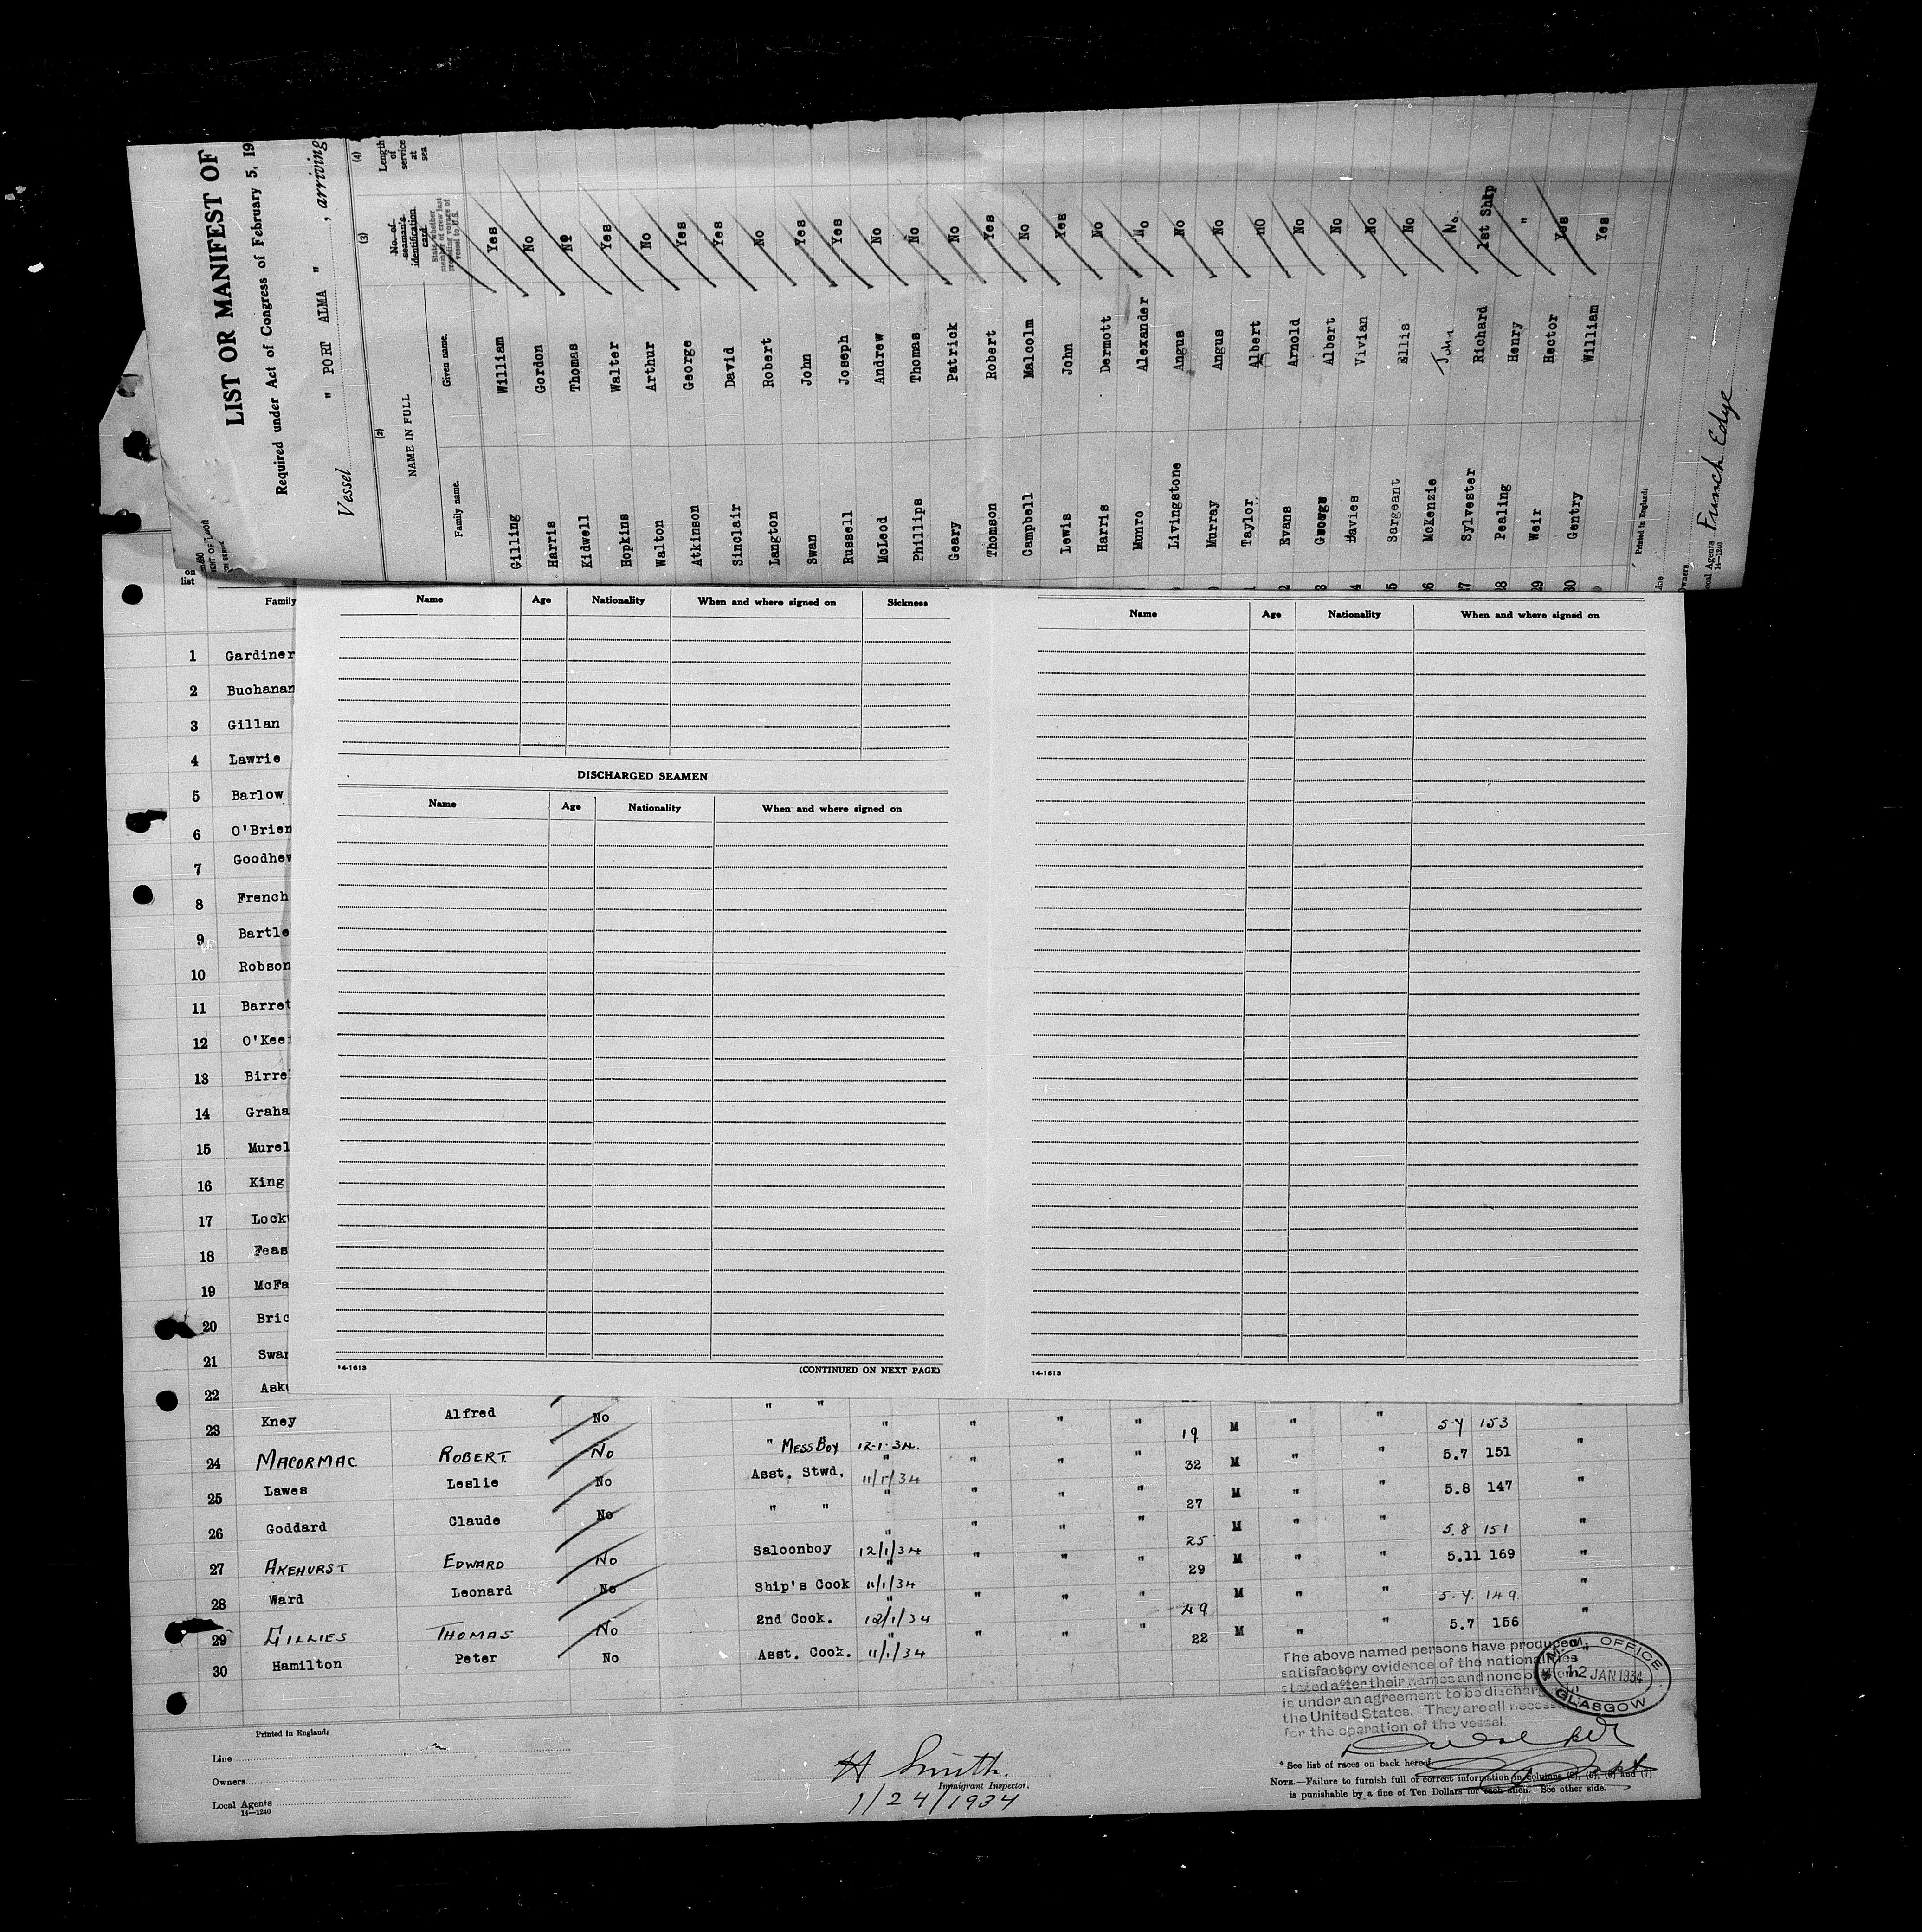 LIST OR MANIFEST OF
Required under Act of Congress of February 5, 19
Vessel " PORT ALMA " , arriving
(2) (3) (4)
NAME IN FULL No. of seaman's identification card Length of service at sea
State whether member of crew last preceding voyage of vessel to U.S.
Family name. Given name.
Gilling William Yes
Harris Gordon No
Kidwell Thomas No
Hopkins Walter Yes
Walton Arthur No
Atkinson George Yes
Sinclair David Yes
Langton Robert No
Swan John Yes
Russell Joseph Yes
McLeod Andrew No
Phillips Thomas No
Geary Patrick No
Thomson Robert Yes
Campbell Malcolm No
Lewis John Yes
Harris Dermott No
Munro Alexander No
Livingstone Angus No
Murray Angus No
Taylor Albert no
2 Evans Arnold No
3 George Albert No
4 Davies Vivian No
5 Sargeant Ellis No
6 McKenzie John No.
27 Sylvester Richard 1st Ship
28 Pealing Henry "
29 Weir Hector Yes
30 Gentry William Yes
Printed in England:
Line
Owners
Local Agents Funch Edye
14—1240
on
list
Family
1 Gardiner
2 Buchanan
3 Gillan
4 Lawrie
5 Barlow
6 O'Brien
7 Goodhew
8 French
9 Bartle
10 Robson
11 Barret
12 O'Kee
13 Birre
14 Graha
15 Murel
16 King
17 Lock
18 Feas
19 McFa
20 Bric
21 Swan
22 Ask
Name Age Nationality When and where signed on Sickness
DISCHARGED SEAMEN
Name Age Nationality When and where signed on
14-1613 (CONTINUED ON NEXT PAGE)
Name Age Nationality When and where signed on
14-1613
23 Kney Alfred No " " " " " " 19 M " " 5.7 153
24 MACORMAC ROBERT No " MESS BOY 12-1-34. " " " 32 M " " 5.7 151 "
25 Lawes Leslie No Asst. Stwd. 11/1/34 " " " 27 M " " 5.8 147 "
26 Goddard Claude No " " " " " " 25 M " " 5.8 151 "
27 AKEHURST EDWARD No Saloonboy 12/1/34 " " " 29 M " " 5.11 169 "
28 Ward Leonard No Ship's Cook 11/1/34 " " " 49 M " " 5.7. 149. "
29 GILLIES THOMAS No 2nd Cook. 12/1/34 " " " 22 M " " 5.7 156 "
30 Hamilton Peter No Asst. Cook. 11/1/34
The above named persons have produced
satisfactory evidence of the nationalities
stated after their names and none of them
is under an agreement to be discharged in
the United States. They are all necess
for the operation of the vessel.
M.M. OFFICE
12 JAN 1934
GLASGOW
Printed in England:
Line
Owners
Local Agents
14—1240
H Smith.
Immigrant Inspector.
1/24/1934
* See list of races on back hereof.
NOTE.—Failure to furnish full or correct information in columns (2), (5), (6) and (7)
is punishable by a fine of Ten Dollars for each alien. See other side.